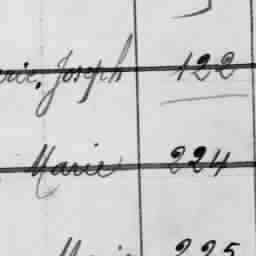 Joseph 122
Marie 224
Marie 225